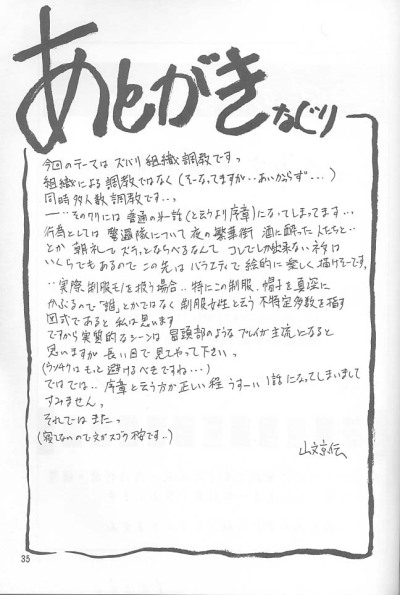 あとがき なぐり
今回のテーマは ズバリ 組織調教です。
組織による調教ではなく(そーなってますが…あいかわらず…)
同時多人数調教です…。
…そのワリには 普通の第一話(と云うより序章)になってしまってます…。
行為としては 警邏隊について 夜の繁華街 酒に酔った人たちと…
とか 朝礼で ズラっとならべるなんて コレでしか出来ないネタは
いくらでもあるので この先は バラエティで 絵的に 楽しく 描けそーです。
…実際 制服モノを扱う場合… 特にこの制服、帽子を真深に
かぶるので "個"とかではなく 制服女性と云う 不特定多数を指す
図式であると 私は思います
ですから 実質的なシーンは 冒頭部のような プレイが主流になると
思いますが 長い目で見てやって下さい。
(ウソチクはもっと避けるべきですね…)
ではでは… 序章と云う方が正しい程 うすーい 1話になってしまいまして
すみません。
それでは また。
(寝てないので 文がスゴク 変です…)
山文京伝
35